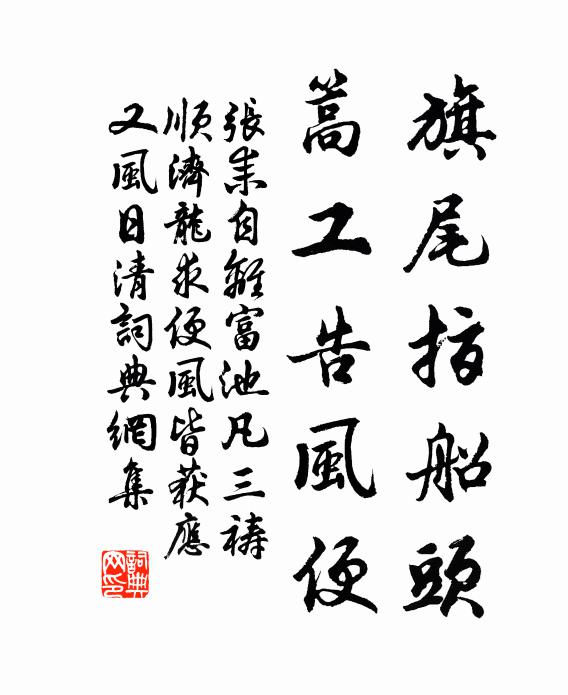 旗尾指船頭
蒿工告風便
張耒自離富池凡三禱
順濟龍求便風皆获應
又風日清詞典網集
詞典
网印